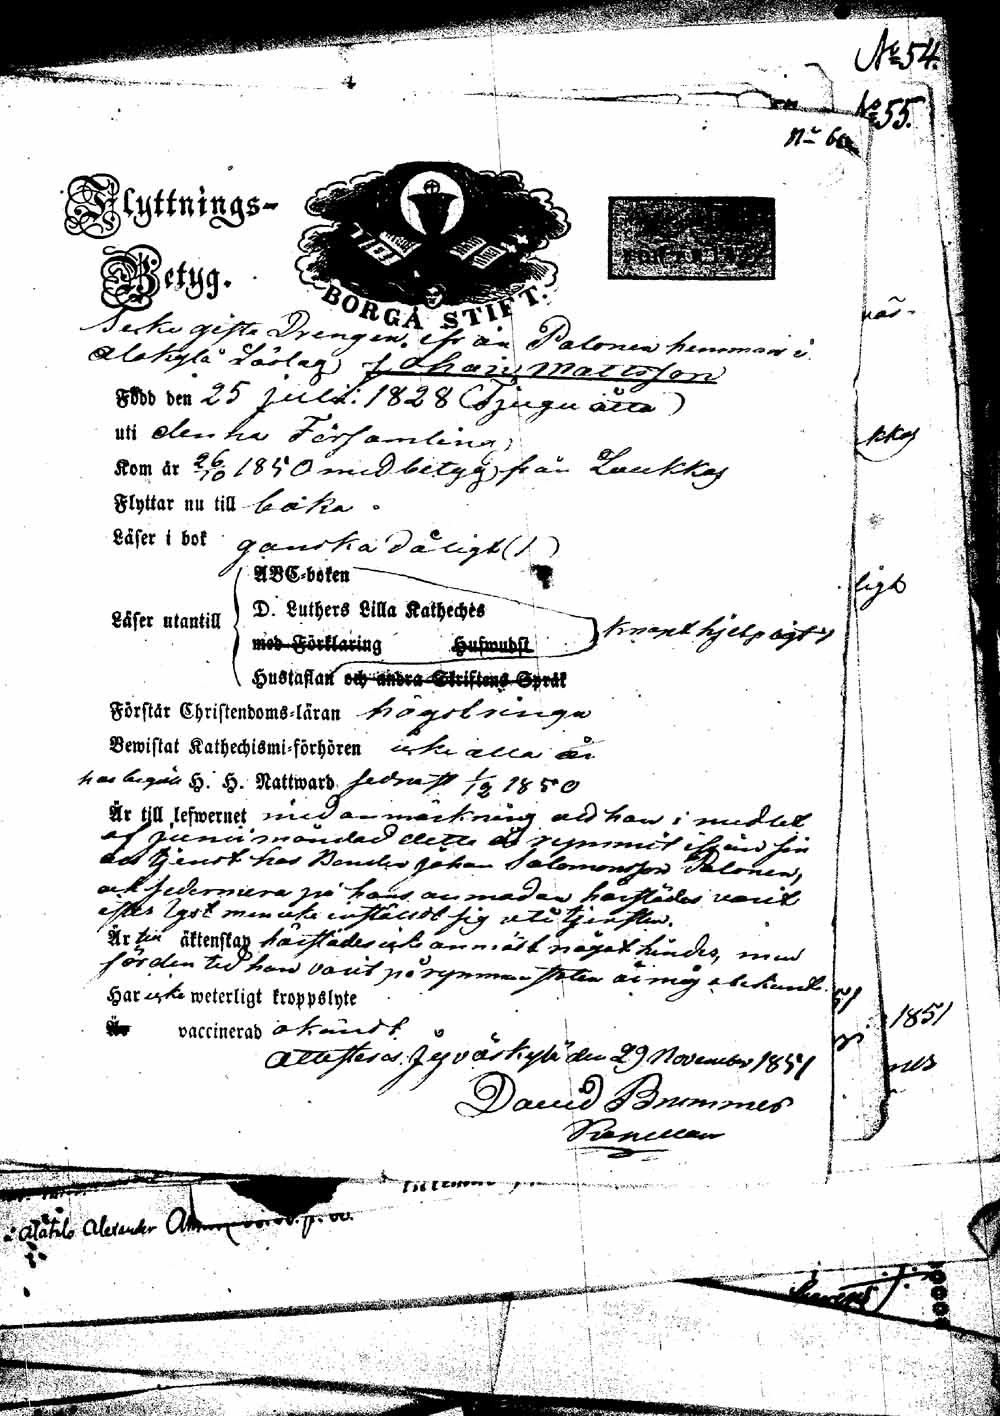 No 54.
No 55.
No 60
Flyttnings-
Betyg.
BORGÅ STIFT.
Icke gifta Drengen, ifrån Palonen hemman i
Alakylä Låslag, Johan Mattsson
Född den 25 julii 1828 (Tjugu åtta)
uti denna Församling,
Kom år 26/10 1850 med betyg från Laukkas
kkas
Flyttar nu till baka.
Läser i bok ganska dåligt (1)
ABC-boken
ligt
Läser utantill
D. Luthers Lilla Katheches
knapt hjelpligt
med Förklaring Huswudst
Hustaflan och andra Skriftens Språk
Förstår Christendoms-läran högst ringa
Bewistat Kathechismi-förhören icke alla år
har begått H. H. Nattward sednast 1/2 1850
Är till lefwernet med anmärkning att han i medlet
af junii månad detta år rymmit ifrån sin
tjenst hos Bonden Johan Salomonsson Palonen,
och sedermera på hans anmodan härstädes varit
efterlyst men icke inställdt sig uti tjensten.
Är till äktenskap härstädes icke anmält något hinder, men
för den tid han varit på rymmen är mig obekant.
Har icke weterligt kroppslyte
Är vaccinerad okändt.
1851
Attesteras. Jyväskylä den 29 November 1851
David Brummer
Kapellan
Alatalo Alexander